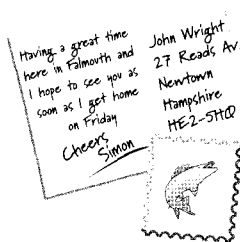 Having a great time
here in Falmouth and
I hope to see you as
soon as I get home
on Friday
Cheers
Simon
John Wright
27 Reads Av
Newtown
Hampshire
HE2-5HQ